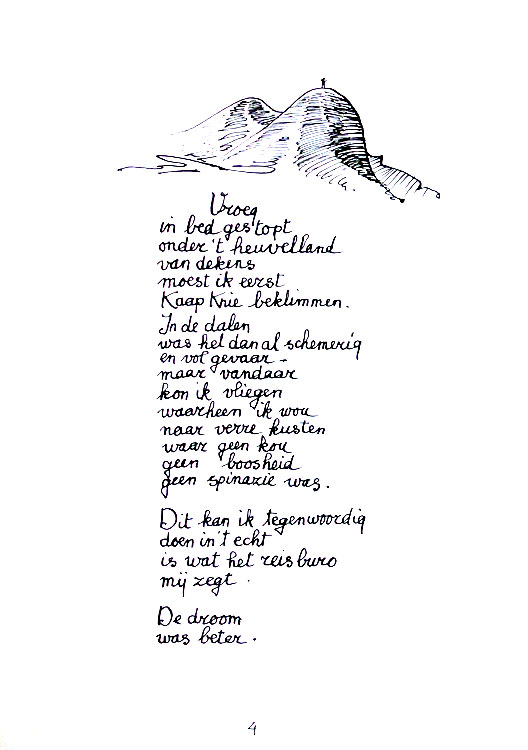 Vroeg
in bed gestopt
onder 't heuvelland
van dekens
moest ik eerst
Kaap Knie beklimmen.
In de dalen
was het dan al schemerig
en vol gevaar -
maar vandaar
kon ik vliegen
waarheen ik wou
naar verre kusten
waar geen kou
geen boosheid
geen spinazie was.
Dit kan ik tegenwoordig
doen in 't echt
is wat het reisburo
mij zegt.
De droom
was beter.
4